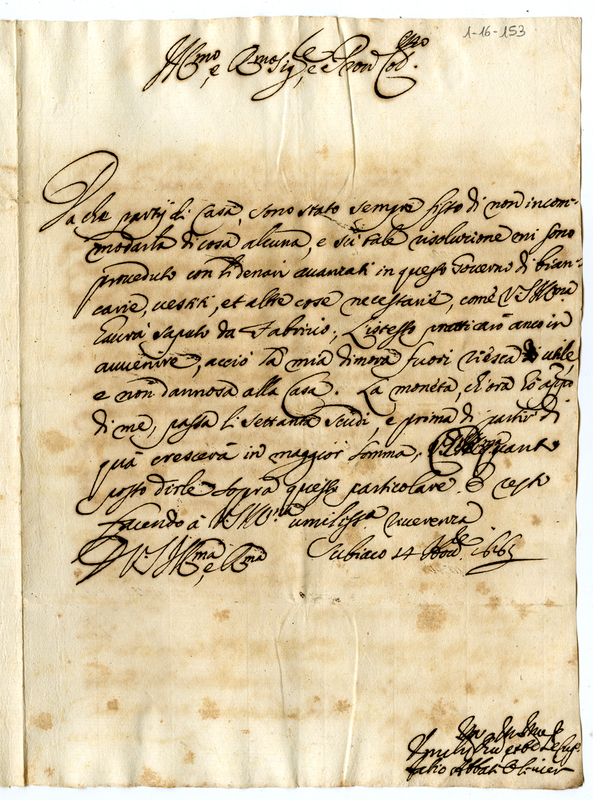 1-16-153
Ill.mo e R.mo Sig.re e Pron Col.mo
Da che partij di Casa, sono stato sempre fisso di non incom-
modarla di cosa alcuna, e sù tale risoluzione mi sono
proceduto con li denari auanzati in questo Gouerno di bian-
carie, uestiti, et altre cose necestarie, come V.S. Ill.ma
haurà saputo da Fabrizio, L'istesso praticarò anco in
auuenire, acciò la mia dimora fuori riesca utile,
e non dannosa alla Casa. La moneta, ch'ora hò appo
di me, passa li settanta Scudi, e prima di partir di
quà crescerà in maggior somma, quanto
posso dirle sopra questo particolare. E resto
facendo à V.S. Ill.ma umilissima riuerenza
Di V.S. Ill.ma e R.ma Subiaco 14 1665
Abbati Oliuier